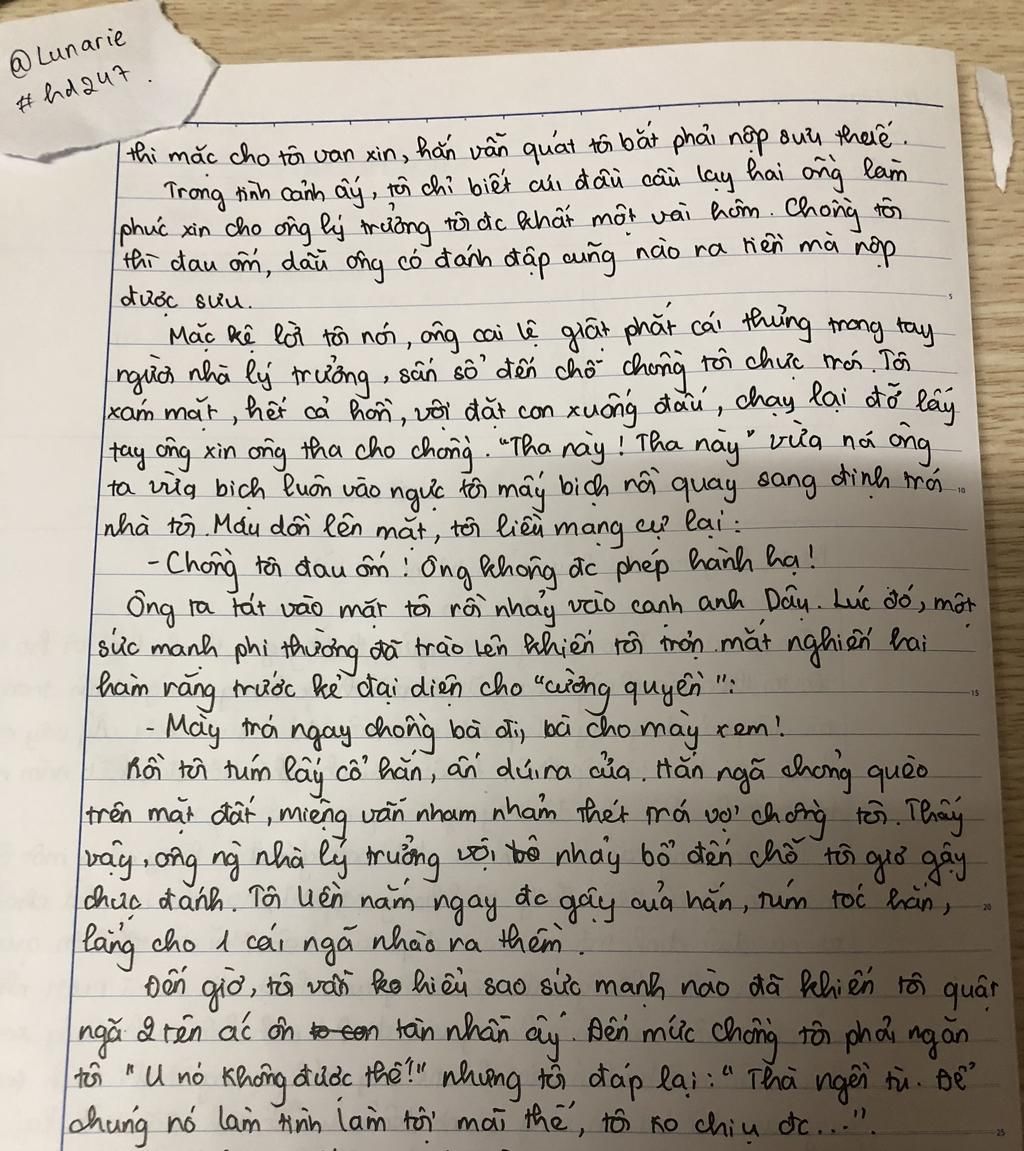 @Lunarie
#hd247.
thì mặc cho tôi van xin, hắn vẫn quát tôi bắt phải nộp sưu thuế.
Trong tình cảnh ấy, tôi chỉ biết cúi đầu cầu lạy hai ông làm
phúc xin cho ông lý trưởng tôi đc khất một vài hôm. Chồng tôi
thì đau ốm, dẫu ông có đánh đập cũng nào ra tiền mà nộp
được sưu.
Mặc kệ lời tôi nói, ông cai lệ giật phắt cái thừng trong tay
người nhà lý trưởng, sấn sổ đến chỗ chồng tôi chực trói. Tôi
xám mặt, hết cả hồn, vội đặt con xuống đấy, chạy lại đỡ lấy
tay ông xin ông tha cho chồng. "Tha này! Tha này" vừa nói ông
ta vừa bịch luôn vào ngực tôi mấy bịch rồi quay sang định trói
nhà tôi. Máu dồn lên mặt, tôi liều mạng cự lại:
- Chồng tôi đau ốm! Ông không đc phép hành hạ!
Ông ra tát vào mặt tôi rồi nhảy vào cạnh anh Dậu. Lúc đó, một
sức mạnh phi thường đã trào lên khiến tôi trợn mắt nghiến hai
hàm răng trước kẻ đại diện cho "cường quyền":
- Mày trói ngay chồng bà đi, bà cho mày xem!
Rồi tôi túm lấy cổ hắn, ấn dúi ra cửa. Hắn ngã chỏng quèo
trên mặt đất, miệng vẫn nham nhảm thét trói vợ chồng tôi. Thấy
vậy, ông ng nhà lý trưởng vội bô nhảy bổ đến chỗ tôi giơ gậy
chực đánh. Tôi liền nắm ngay đc gậy của hắn, túm tóc hắn,
lẳng cho 1 cái ngã nhào ra thềm.
Đến giờ, tôi vẫn ko hiểu sao sức mạnh nào đã khiến tôi quật
ngã 2 tên ác ôn to con tàn nhẫn ấy. Đến mức chồng tôi phải ngăn
tôi "U nó không được thế!" nhưng tôi đáp lại: "Thà ngồi tù. Để
chúng nó làm tình làm tội mãi thế, tôi ko chịu đc...".